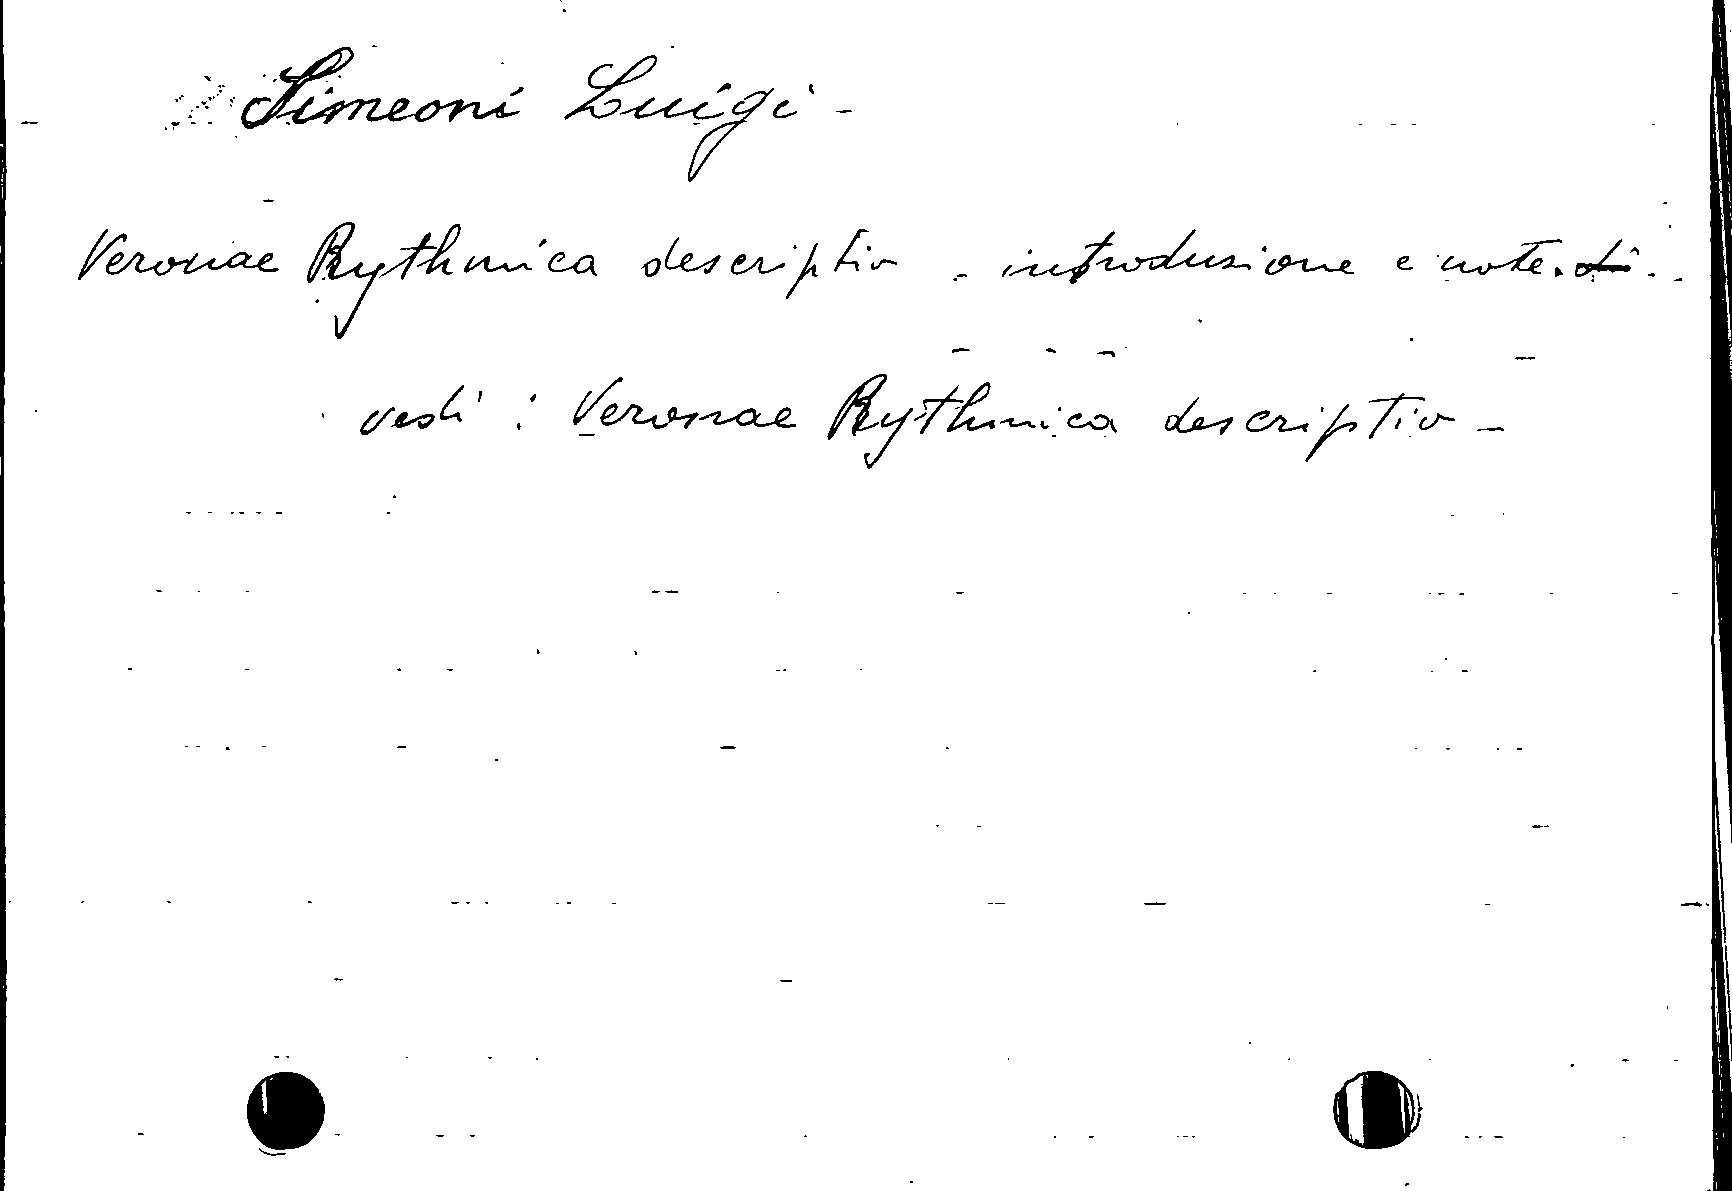 Simeoni Luigi -
Veronae Rythmica descriptio - introduzione e note. di -
vedi : Veronae Rythmica descriptio -